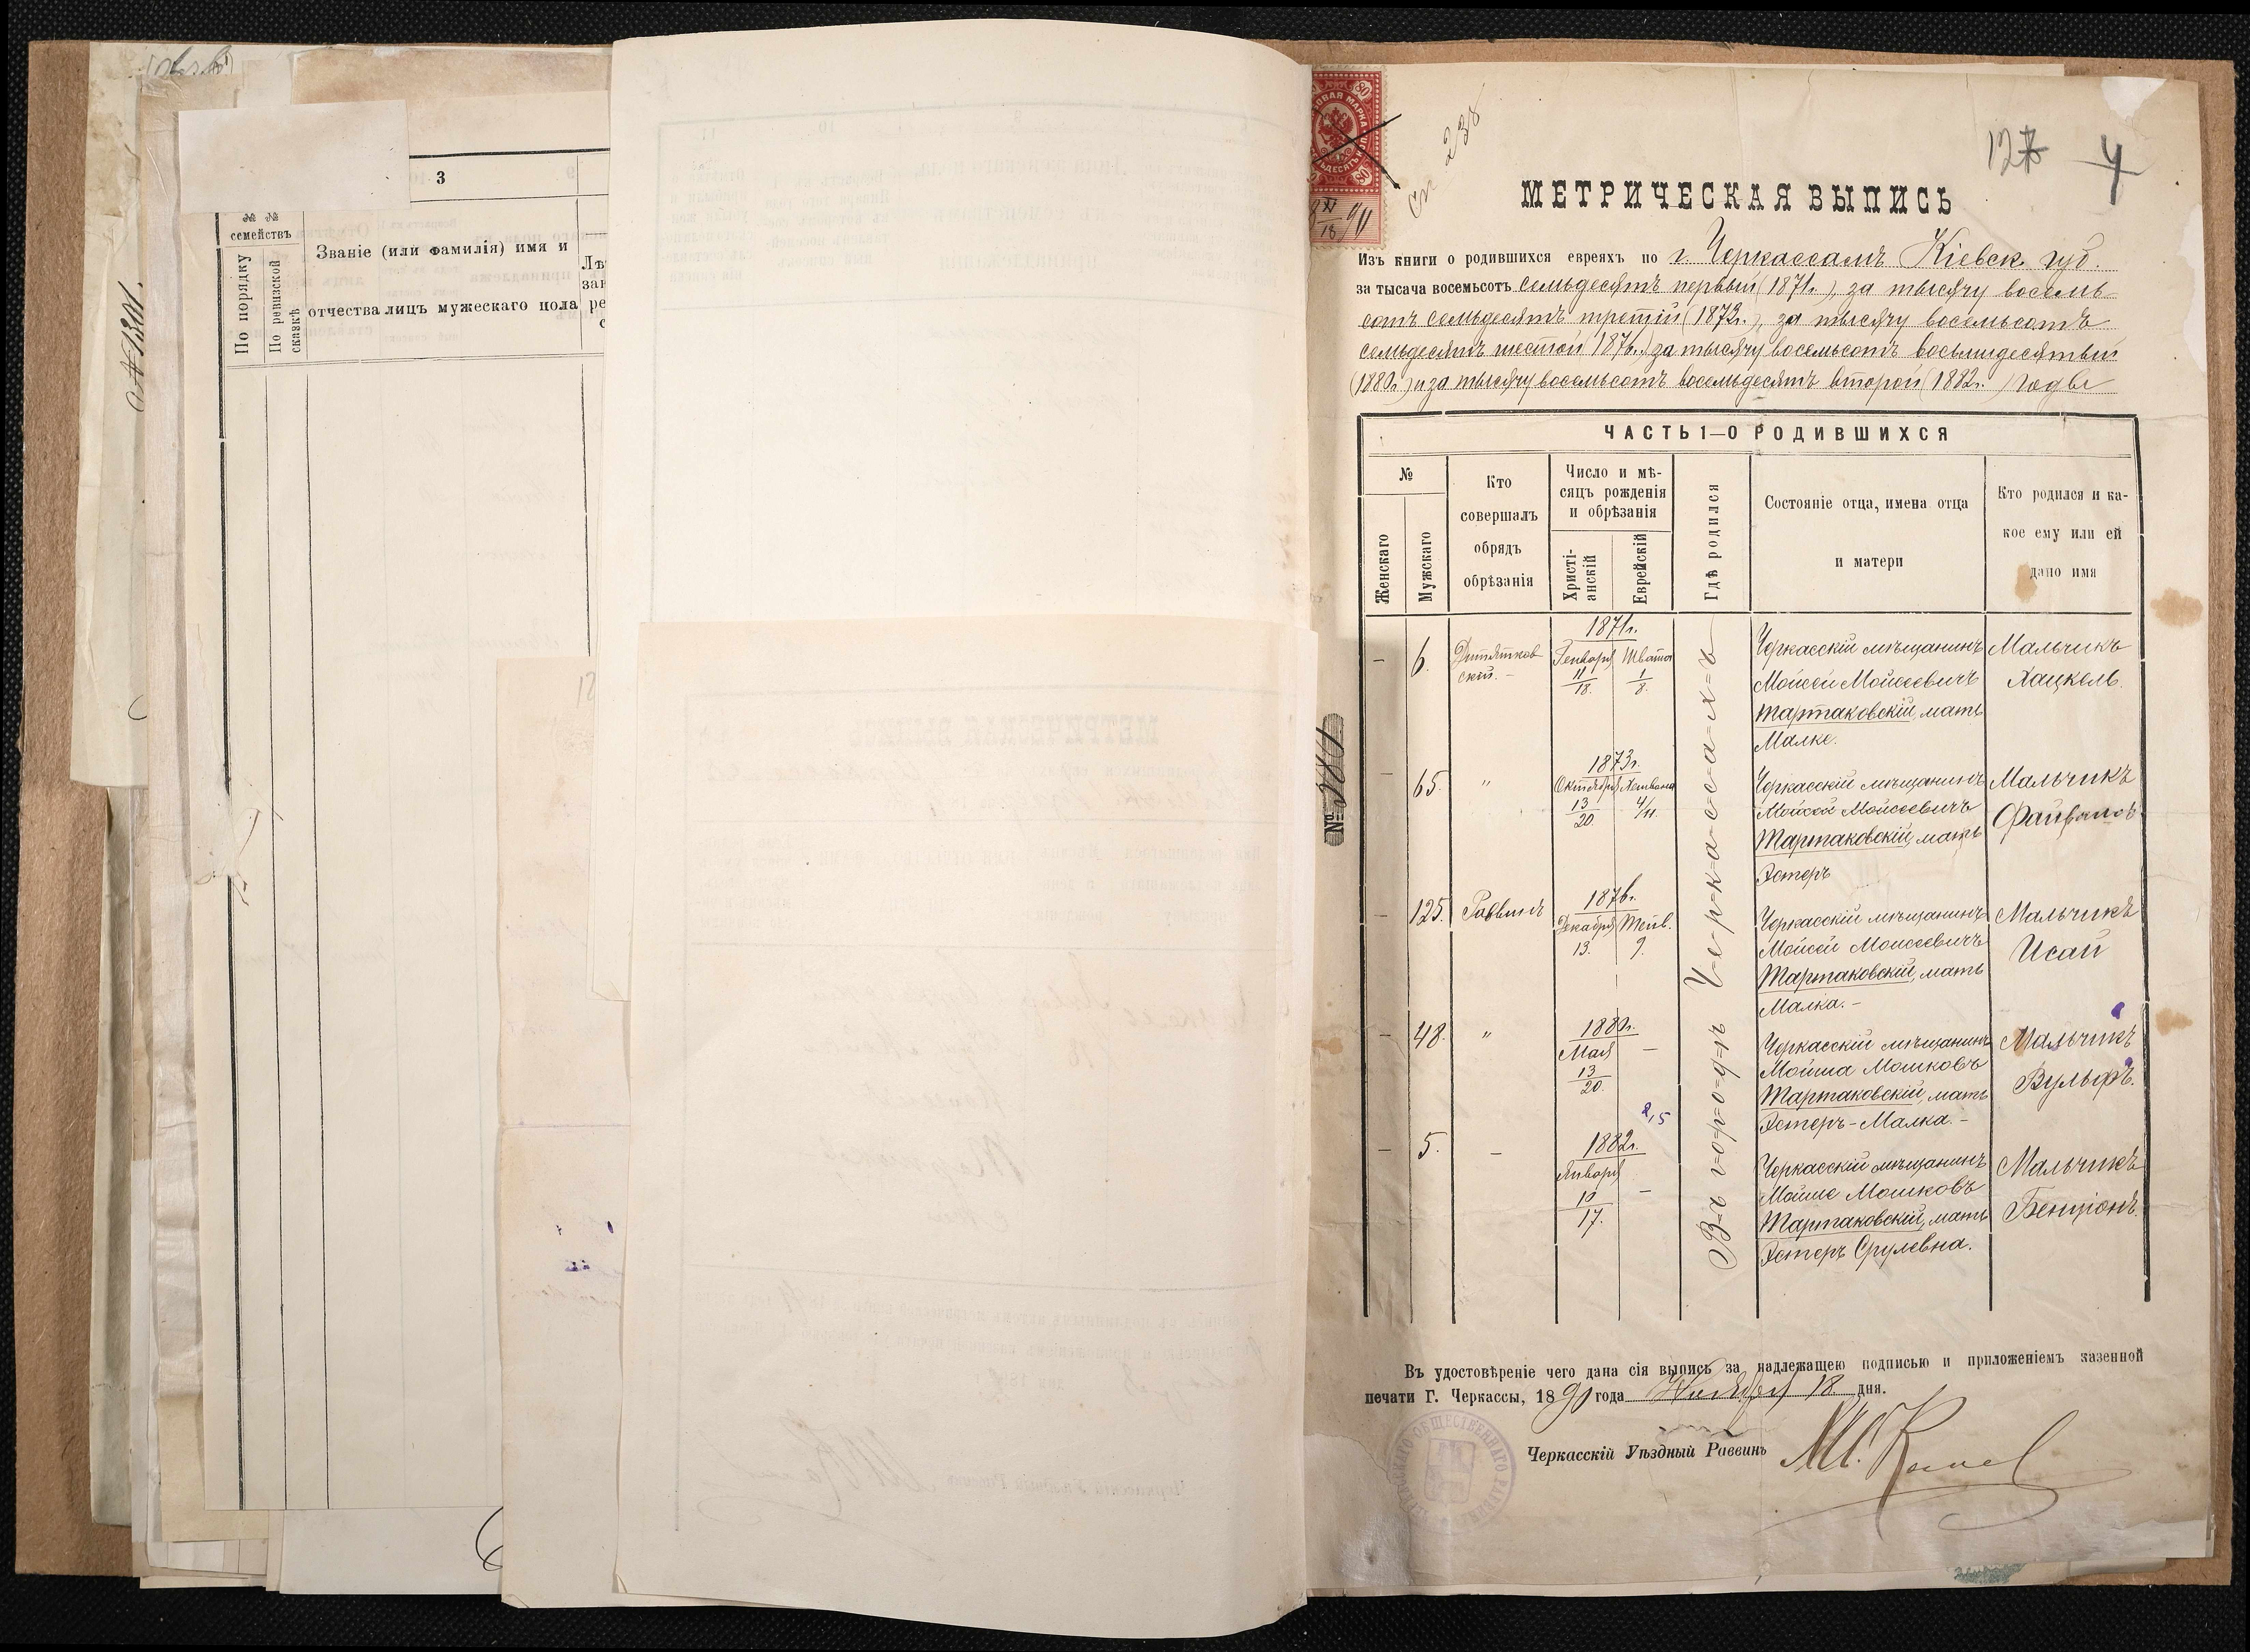 № 1301.
3
№ №
семействъ
По порядку
По ревизской
сказкѣ
Званіе (или фамилія) имя и
отчества лицъ мужескаго пола
№ 381
238
127
4
18 XI/18 90
МЕТРИЧЕСКАЯ ВЫПИСЬ
Изъ книги о родившихся евреяхъ по г. Черкассамъ Кіевск. губ.
за тысяча восемьсотъ семьдесятъ первый (1871г.), за тысячу восемь-
сотъ семьдесятъ третій (1873г.), за тысячу восемьсотъ
семьдесятъ шестой (1876г.) за тысячу восемьсотъ восьмидесятый
(1880г.) и за тысячу восемьсотъ восемьдесятъ второй (1882г.) годы
ЧАСТЬ 1—О РОДИВШИХСЯ
№
Женскаго
Мужскаго
Кто
совершалъ
обрядъ
обрѣзанія
Число и мѣ-
сяцъ рожденія
и обрѣзанія
Христі-
анскій
Еврейскій
Гдѣ родился
Состояніе отца, имена отца
и матери
Кто родился и ка-
кое ему или ей
дано имя
Въ городѣ Черкассахъ
1871г.
– 6. Дитятков- Генваря Швата Черкасскій мѣщанинъ Мальчикъ
скій. – 11/18. 1/8. Мойсей Мойсеевичъ Хацкель.
Тартаковскій, мать
Малке.
1873г.
– 65. " Октября Хешвана Черкасскій мѣщанинъ Мальчикъ
13/20. 4/11. Мойсей Мойсеевичъ Файвишъ
Тартаковскій, мать
Эстеръ
1876г.
– 125. Раввинъ Декабря Тейв. Черкасскій мѣщанинъ Мальчикъ
13. 9. Мойсей Моисеевичъ Исай
Тартаковскій, мать
Малка. –
1880г.
– 48. " Мая – Черкасскій мѣщанинъ Мальчикъ
13/20. Мойша Мошковъ Вульфъ.
Тартаковскій, мать
Эстеръ-Малка. –
1882г.
– 5. – Января – Черкасскій мѣщанинъ Мальчикъ
10/17. Мойше Мошковъ Бенціонъ.
Тартаковскій, мать
Эстеръ Срулевна.
Въ удостовѣреніе чего дана сія выпись за надлежащею подписью и приложеніемъ казенной
печати Г. Черкассы, 1890 года Ноября 18 дня.
Черкасскій Уѣздный Раввинъ